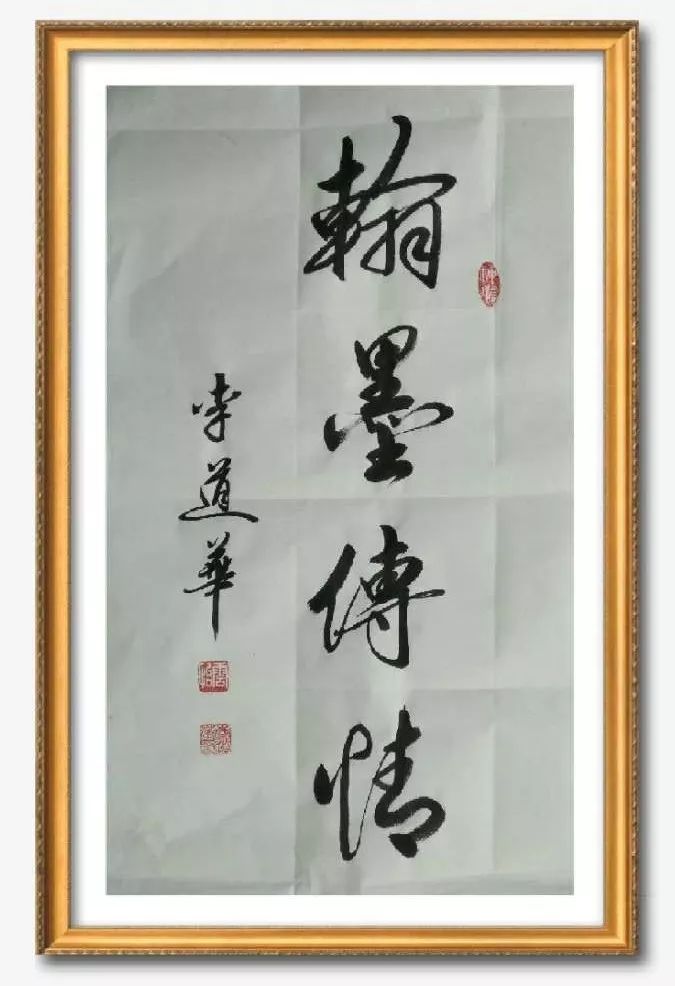 翰墨傳情
李道華